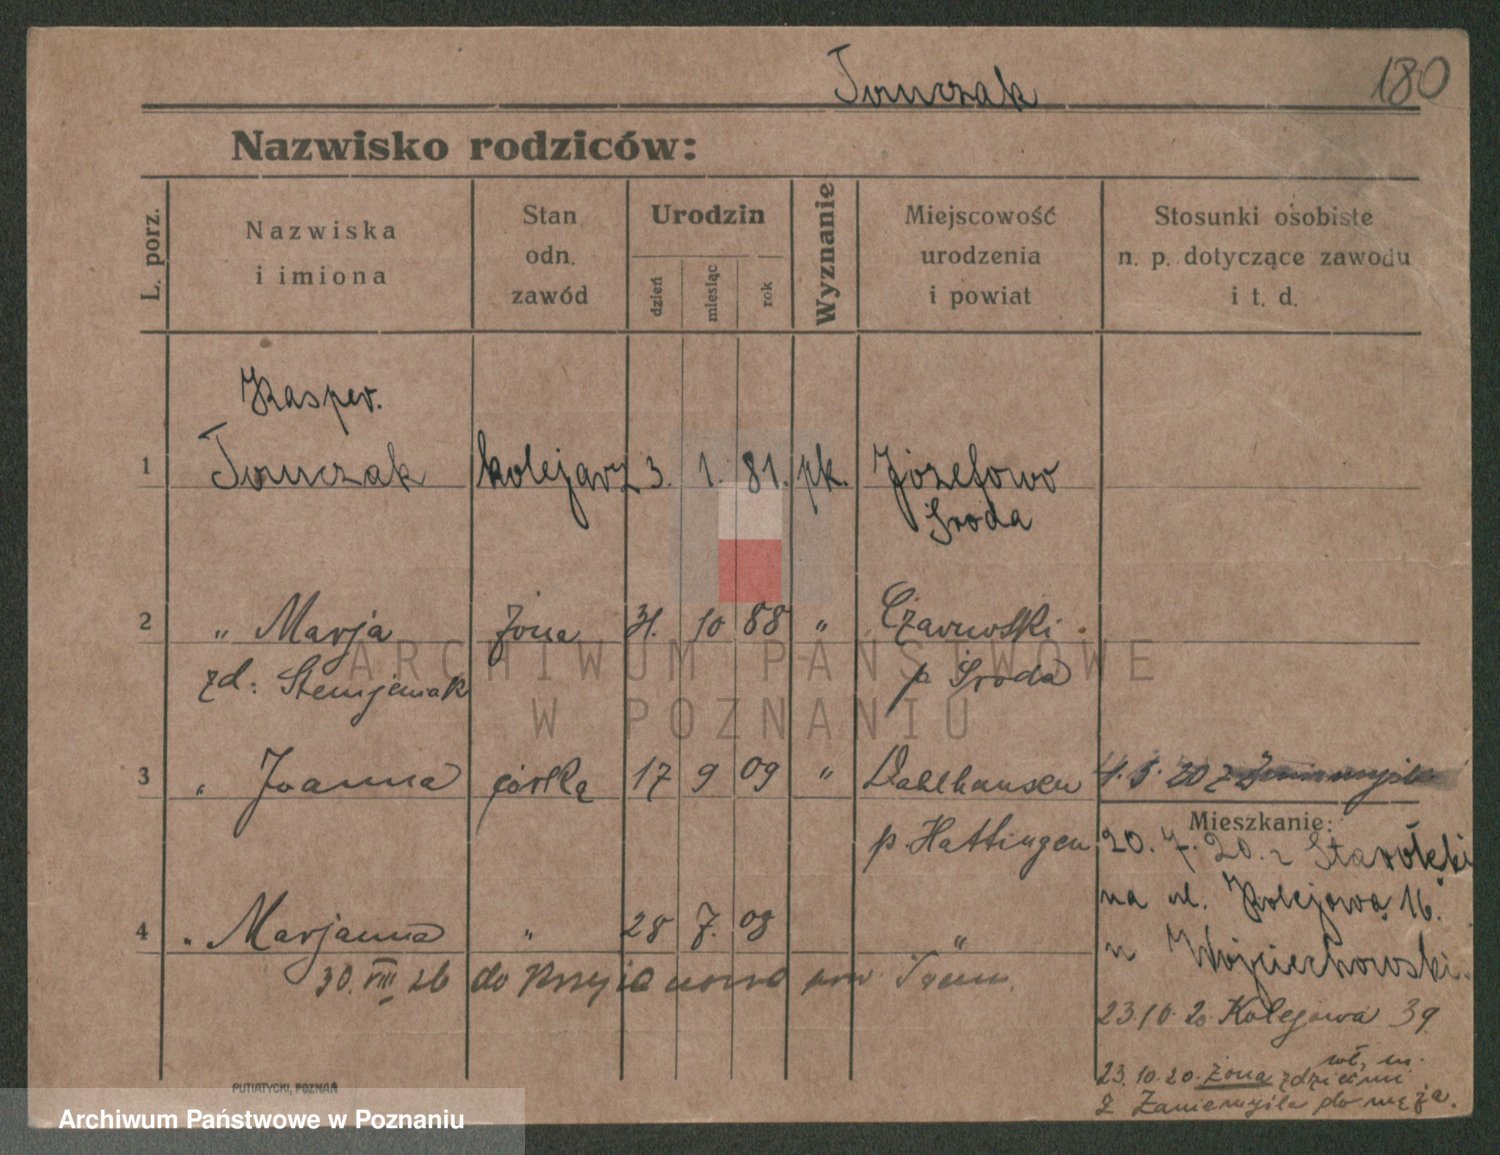 Tomczak
180
Nazwisko rodziców:
L. porz.
Nazwiska
i imiona
Stan
odn.
zawód
Urodzin
dzień
miesiąc
rok
Wyznanie
Miejscowość
urodzenia
i powiat
Stosunki osobiste
n. p. dotyczące zawodu
i t. d.
Kasper.
1 Tomczak kolejarz 3. 1. 81. rk. Józefowo
Sroda
2 " Marja żona 31. 10 88 "
zd: p. Sroda
3 " Joanna córka 17 9 09 " Dahlhausen 4.5.20 z Zaniemyśla
p Hattingen
Mieszkanie:
20.7.20. z Starołęki
na ul. Kolejową 16.
u Wojciechowski.
4 " Marjanna " 28 7. 08 "
30. VIII 26 do
23.10.20 Kolejowa 39
23.10.20. żona z dziećmi
z Zaniemyśla do męża.
PUTIATYCKI, POZNAŃ
ARCHIWUM PAŃSTWOWE
W POZNANIU
Archiwum Państwowe w Poznaniu